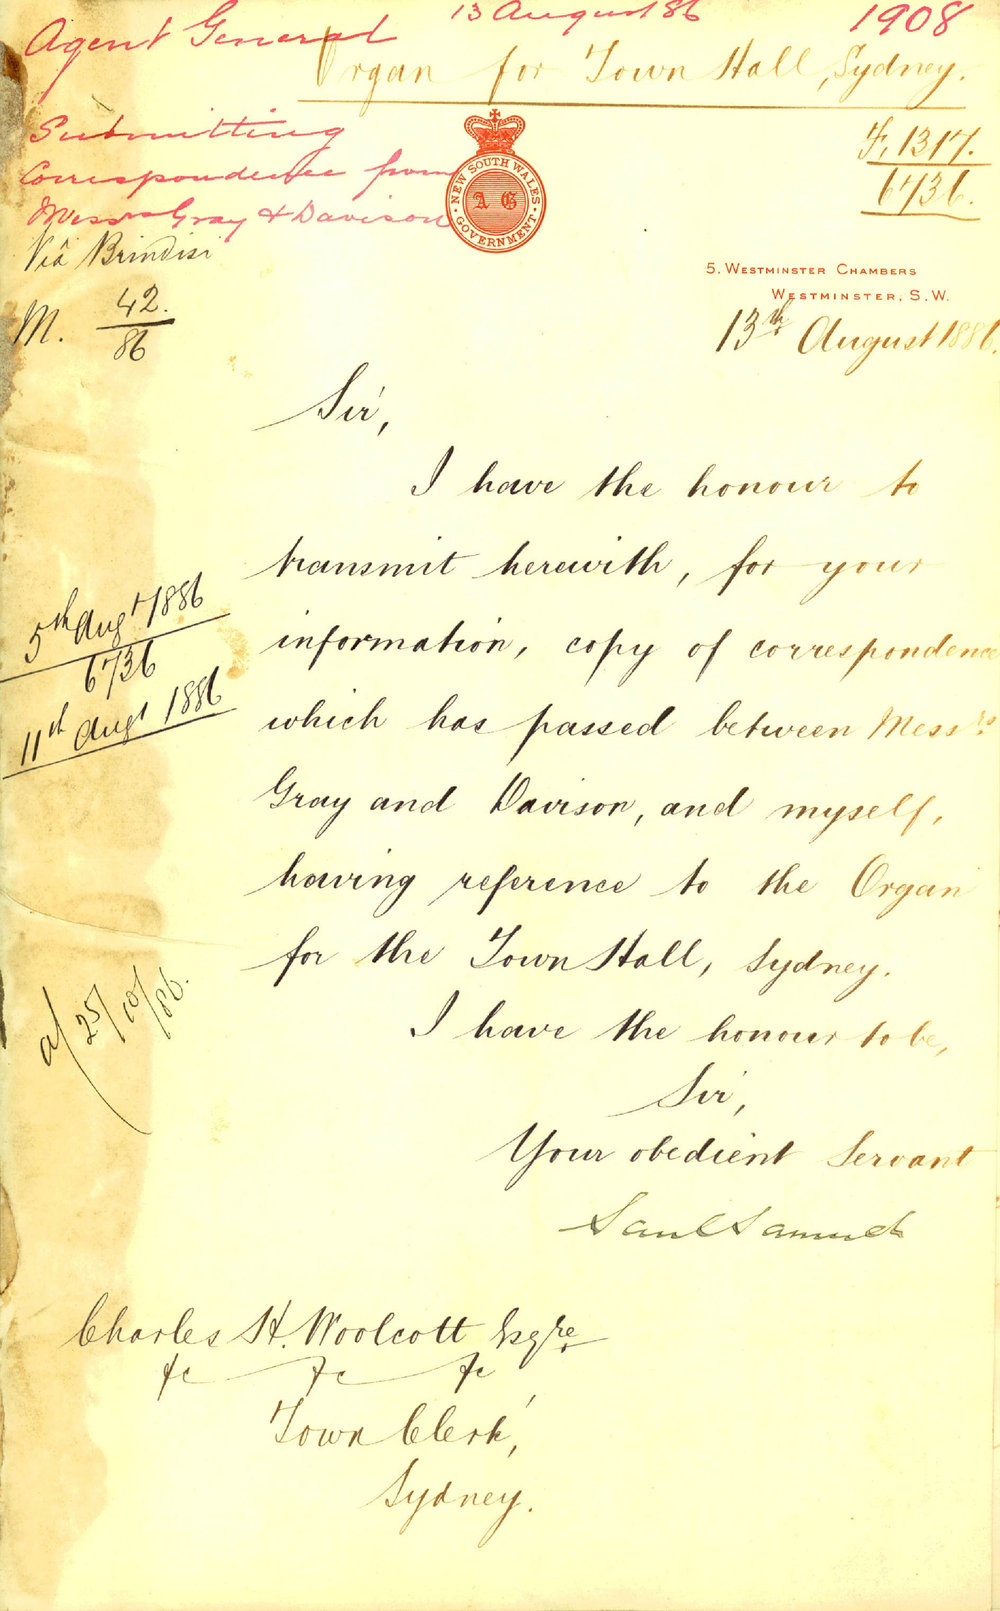 Agent General 13 August 86 1908
Organ for Town Hall, Sydney.
Submitting
Correspondence from
Messrs Gray & Davison
Viâ Brindisi
F, 1317.
6736.
NEW SOUTH WALES
A G
GOVERNMENT
5, WESTMINSTER CHAMBERS
WESTMINSTER, S.W.
M. 42/86
13th August 1886.
Sir,
I have the honour to
transmit herewith, for your
information, copy of correspondence
which has passed between Messrs
Gray and Davison, and myself,
having reference to the Organ
for the Town Hall, Sydney.
5th Augt 1886
6736
11th Augt 1886
a/ 25/10/86.
I have the honour to be,
Sir,
Your obedient Servant
Saul Samuel
Charles H. Woolcott Esqre
&c &c &c
Town Clerk,
Sydney.